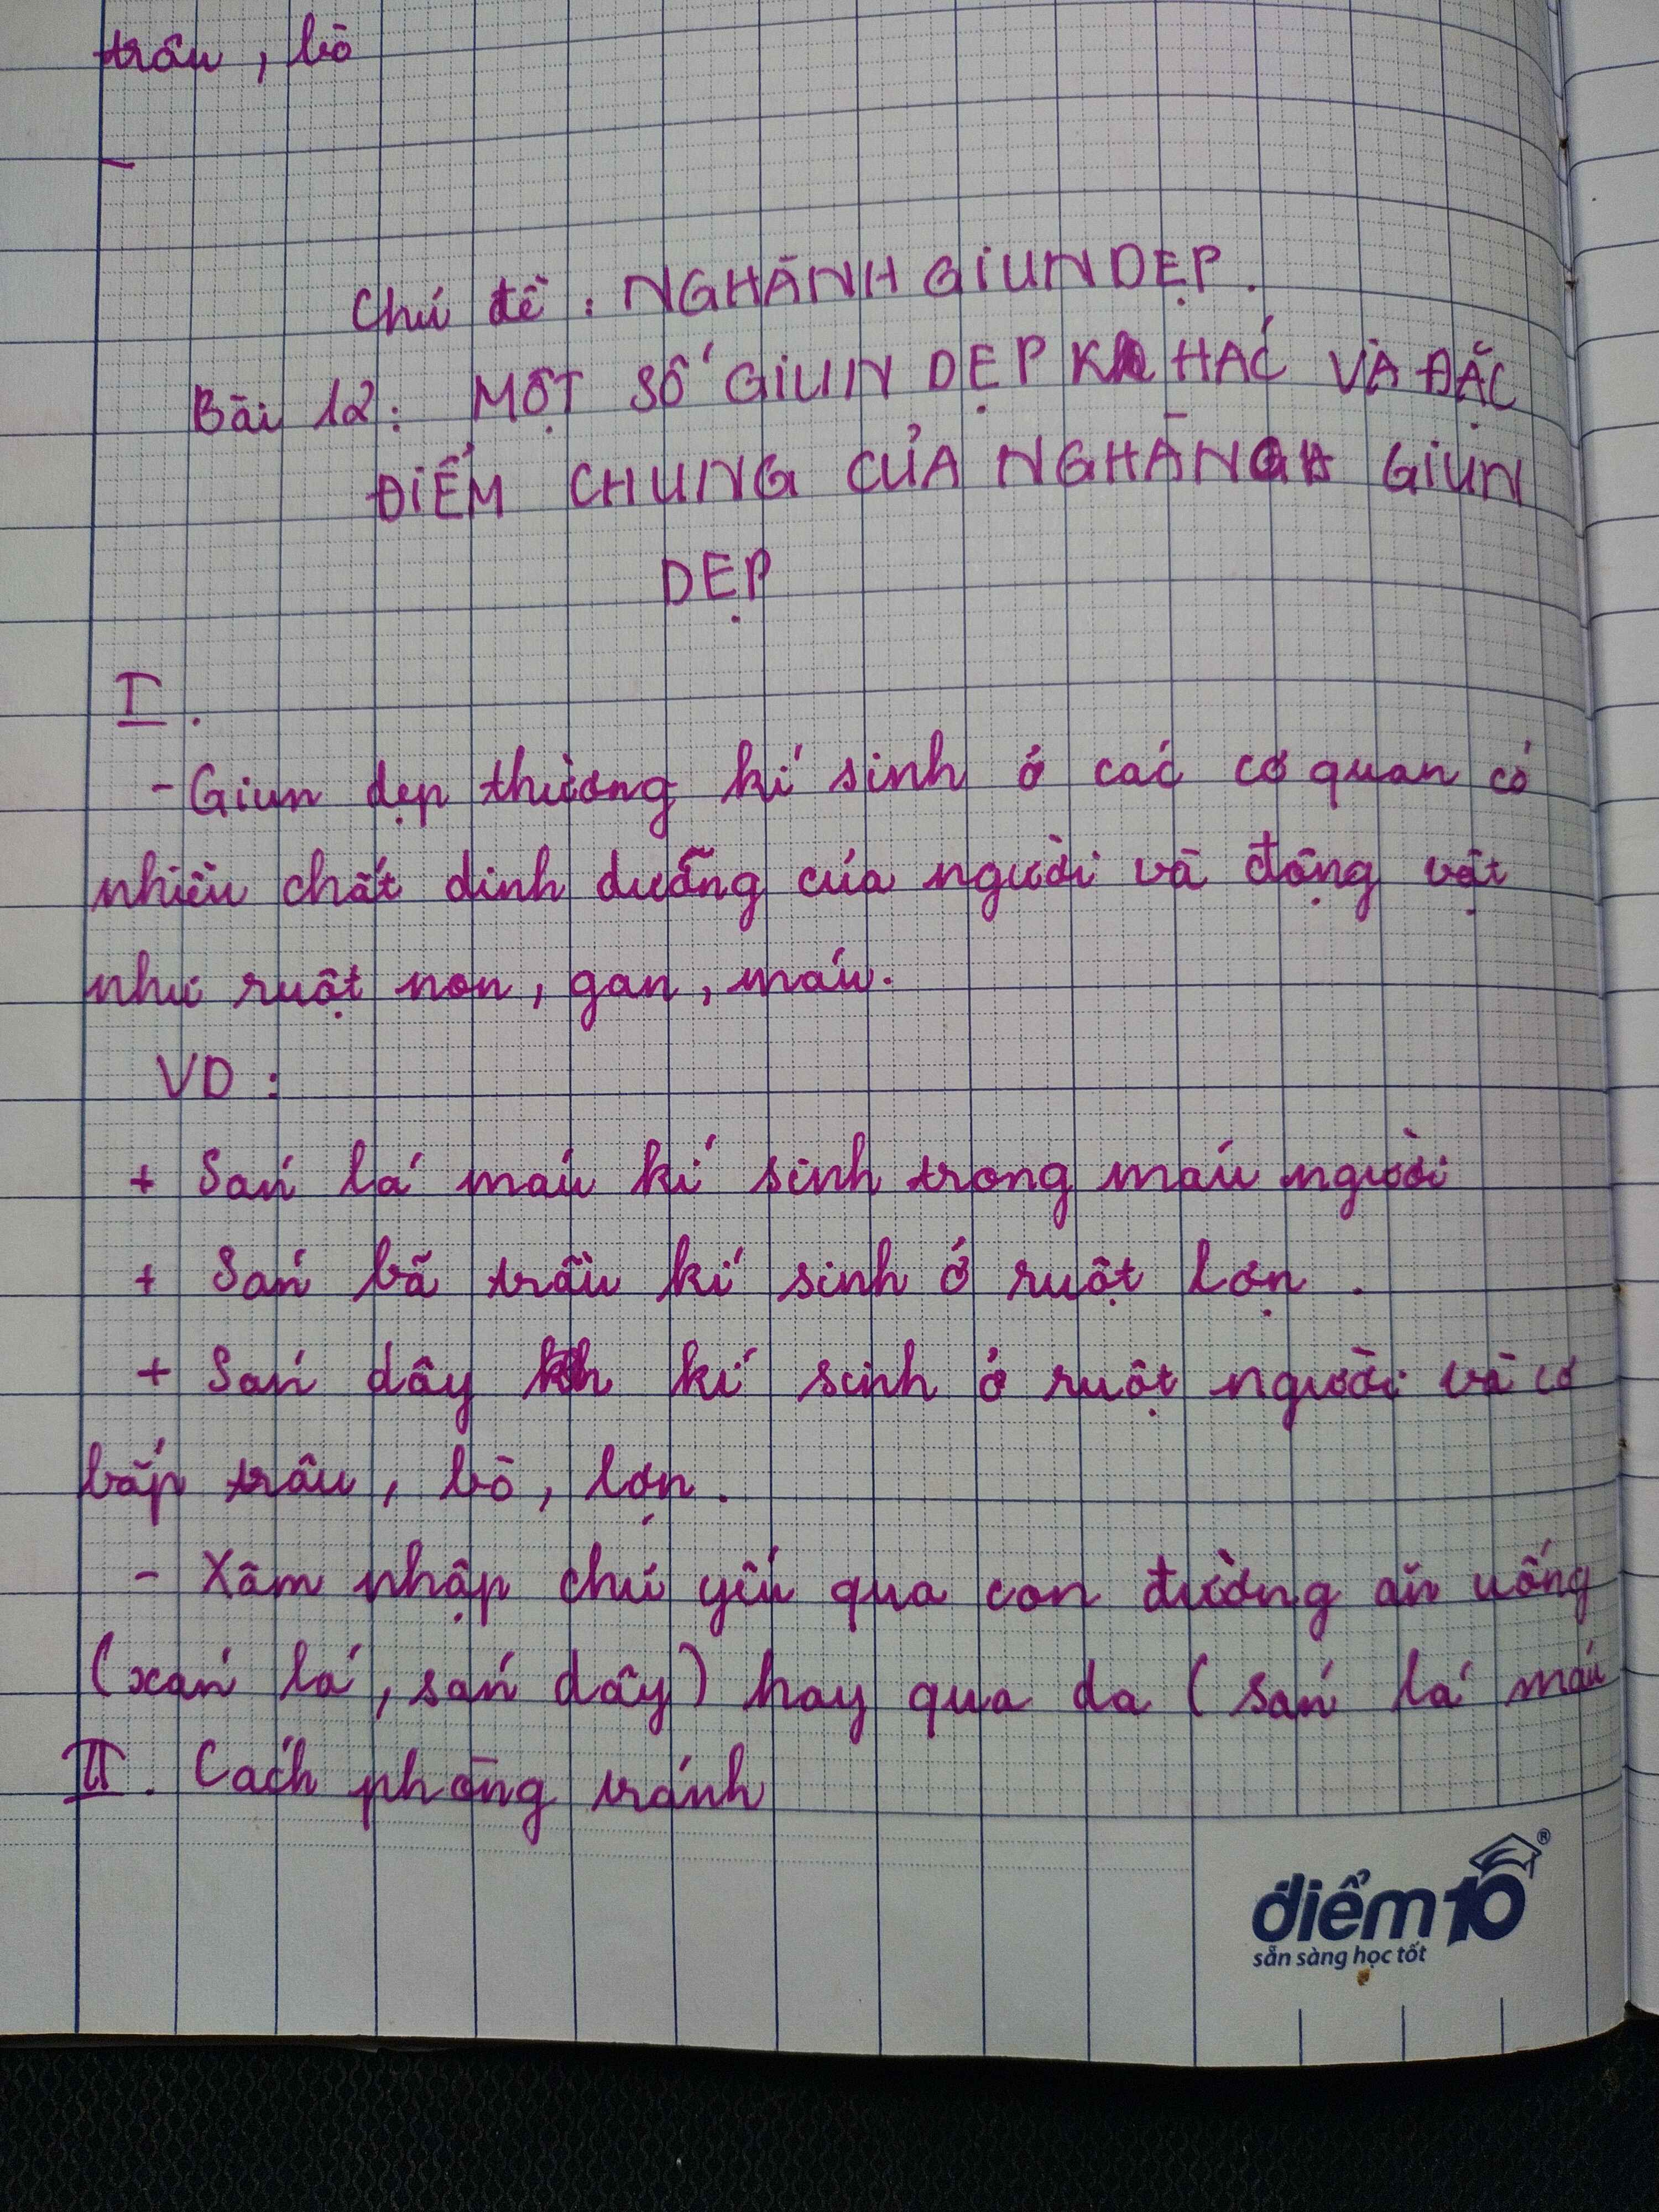 trâu, bò
-
Chủ đề: NGHÀNH GIUN DẸP.
Bài 12: MỘT SỐ GIUN DẸP KHÁC VÀ ĐẶC
ĐIỂM CHUNG CỦA NGHÀNH GIUN
DẸP
I.
- Giun dẹp thường kí sinh ở các cơ quan có
nhiều chất dinh dưỡng của người và động vật
như ruột non, gan, máu.
VD:
+ Sán lá máu kí sinh trong máu người
+ Sán bã trầu kí sinh ở ruột lợn.
+ Sán dây kí sinh ở ruột người và cơ
bắp trâu, bò, lợn.
- Xâm nhập chủ yếu qua con đường ăn uống
(xán lá, sán dây) hay qua da (sán lá máu
II. Cách phòng tránh
điểm 10 ®
sẵn sàng học tốt